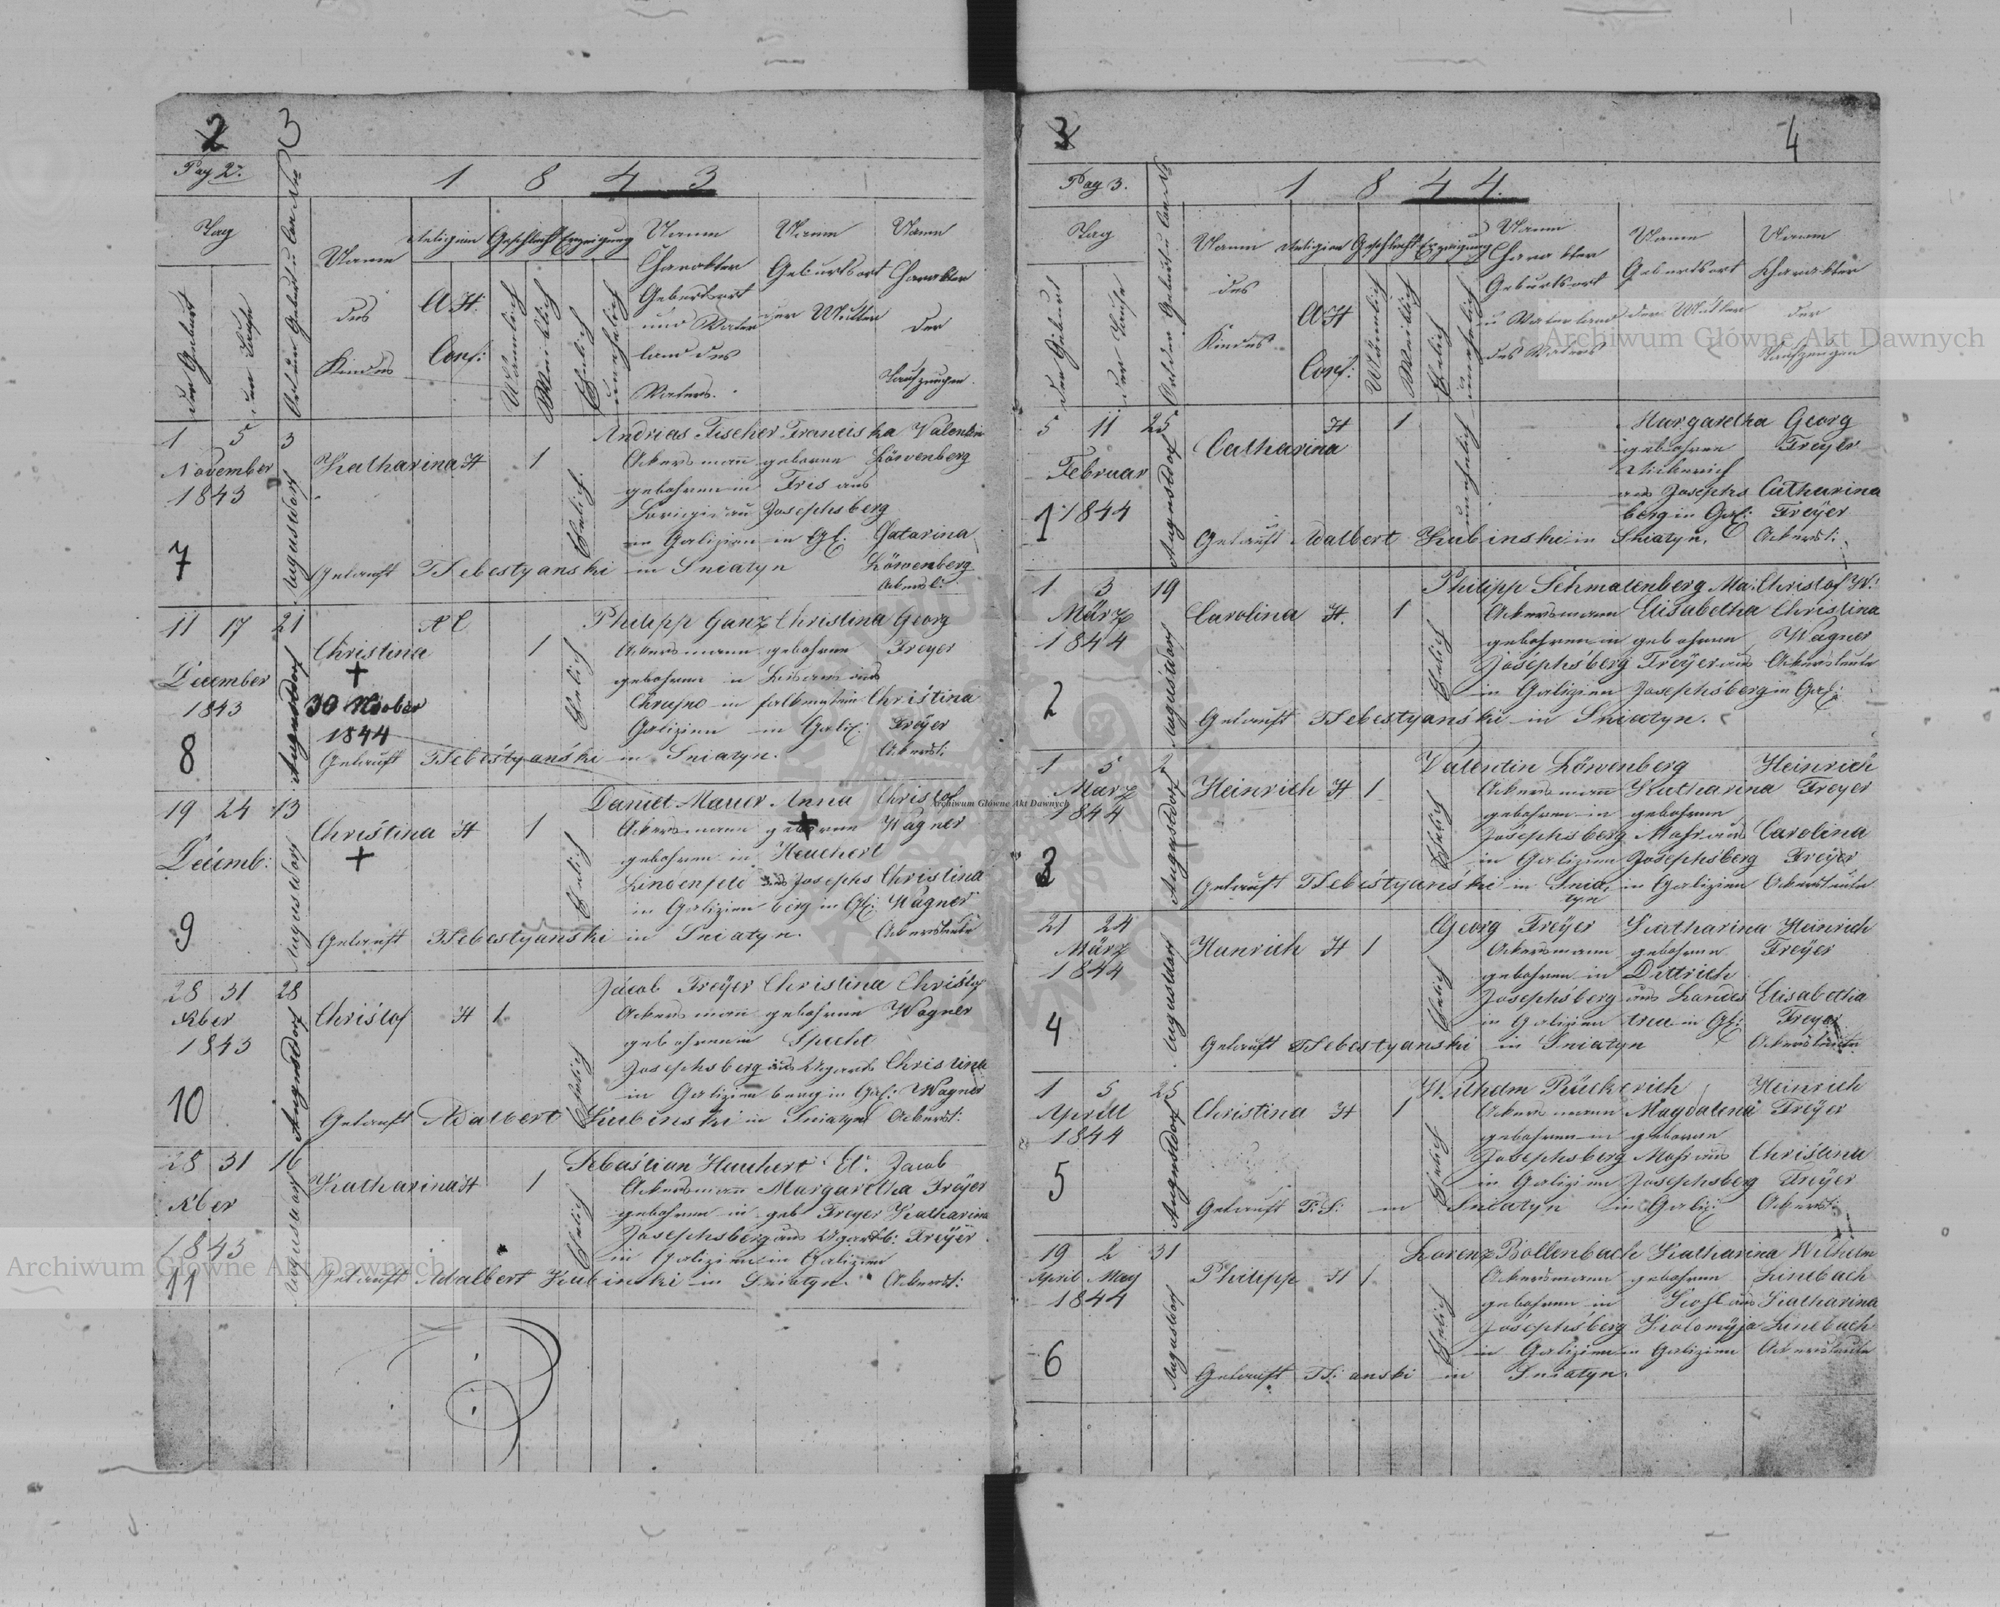 2
3
Pag 2.
1 8 4 3
Tag
der Geburt
der Taufe
Ort der Geburt u Con Nro
Name
des
Kindes
Religion
AH.
Conf:
Geschlecht
Männlich
Weiblich
Erzeugung
Ehelich
unehelich
Name
Charakter
Geburtsort
und Vater
land des
Vaters.
Name
Geburtsort
der Mutter
Name
Charakter
der
Taufzeugen.
1 5 3
November
1843
7
Augustdorf
Katharina H 1
Ehelich
Andrias Fischer Franciska Valentin
Ackersmann geborne Löwenberg
gebohren in Fres aus
Josephsberg
in Galizien in Gl: Catarina
Löwenberg
Ackersl:
Getauft TSebestyanski in Sniatyn
11 17 21
December
1843
8
Augustdorf
Christina
30 
1844
1
Ehelich
Philipp Ganz Christina Georg
Ackersmann gebohren Freyer
gebohren in
in falkenstein Christina
Galizien in Galiz: Freyer
Ackersl:
Getauft TSebestyanski in Sniatyn.
19 24 13
Decemb:
9
Augustdorf
Christina H 1
Ehelich
Daniel Mauer Anna Christof
Ackersmann geborne Wagner
gebohren in Heuchert
Lindenfeld aus Josephs Christina
in Galizien berg in Gl: Wagner
Ackersleute
Getauft TSebestyanski in Sniatyn.
28 31 28
Xber
1843
10
Augustdorf
Christof H 1
Ehelich
Jacob Freÿer Christina Christof
Ackersmann gebohrne Wagner
gebohren in Specht
Josephsberg aus Ugarts Christina
in Galizien berg in Gal: Wagner
Getauft Adalbert Kubinski in Sniatyn Ackersl:
28 31 16
Xber
1843
11
Augustdorf
Katharina H 1
Ehelich
Sebastian Heuchert El. Jacob
Ackersmann Margaretha Freÿer
gebohren in geb Freyer Katharina
Josephsberg aus Ugartb: Freÿer
in Galizien in Galizien
Getauft Adalbert Kubinski in Sniatyn Ackersl:
3
4
Pag 3.
1 8 4 4.
Tag
der Geburt
der Taufe
Ort der Geburt u Con No
Name
des
Kindes
Religion
AH
Conf:
Geschlecht
Männlich
Weiblich
Erzeugung
Ehelich
unehelich
Name
Charakter
Geburtsort
u Vaterland
des Vaters
Name
Geburtsort
der Mutter
Name
Kharakter
der
Taufzeugen
5 11 25
Februar
1844
1
Augustdorf
Catharina H 1
unehelich
Margaretha Georg
gebohren Freyer
aus Josephs Catharina
berg in Gal: Freyer
Getauft Adalbert Kubinski in Sniatyn. Ackersl:
1 3 19
März
1844
2
Augustdorf
Carolina H. 1
Ehelich
Philipp Schmalenberg Ma: Christof W:
Ackersmann Elisabetha Christina
gebohren in gebohren Wagner
Josephsberg Freÿer aus Ackersleute
in Galizien Josephsberg in Gal:
Getauft TSebestyanski in Sniatyn.
1 5 7
März
1844
3
Augustdorf
Heinrich H 1
Ehelich
Valentin Löwenberg Heinrich
Ackersmann Katharina Freyer
gebohren in gebohren
Josephsberg Mohr aus Carolina
in Galizien Josephsberg Freÿer
Getauft TSebestyanski in Snia in Galizien Ackersleute
tyn
21 24
März
1844
4
Augustdorf
Heinrich H 1
Ehelich
Georg Freÿer Katharina Heinrich
Ackersmann gebohren Freÿer
gebohren in Dittrich
Josephsberg aus Landes Elisabetha
in Galizien treu in Gl: Freyer
Getauft TSebestyanski in Sniatyn Ackersleute
1 5 25
Aprill
1844
5
Augustdorf
Christina H 1
Ehelich
Wilhelm Rückerich Heinrich
Ackersmann Magdalena Freÿer
gebohren in geborne
Josephsberg Mohr aus Christina
in Galizien Josephsberg Freÿer
Getauft T:S: in Sniatyn in Galiz: Ackersl:
19 2 31
April May
1844
6
Augustdorf
Philipp H 1
Ehelich
Lorenz Bollenbach Katharina Wilhelm
Ackersmann gebohren Linebach
gebohren in Kohl aus Katharina
Josephsberg Kolomÿja Linebach
in Galizien in Galizien Ackersleute
Getauft TS: anski in Sniatyn.
Archiwum Główne Akt Dawnych
Archiwum Główne Akt Dawnych
Archiwum Główne Akt Dawnych